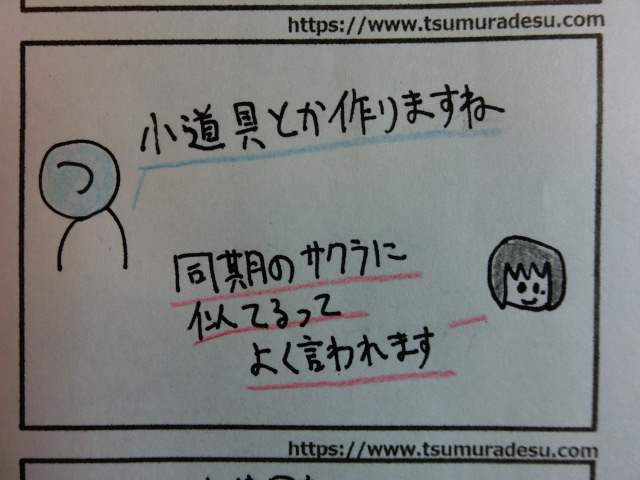 https://www.tsumuradesu.com
小道具とか作りますね
つ
同期のサクラに
似てるって
よく言われます
https://www.tsumuradesu.com